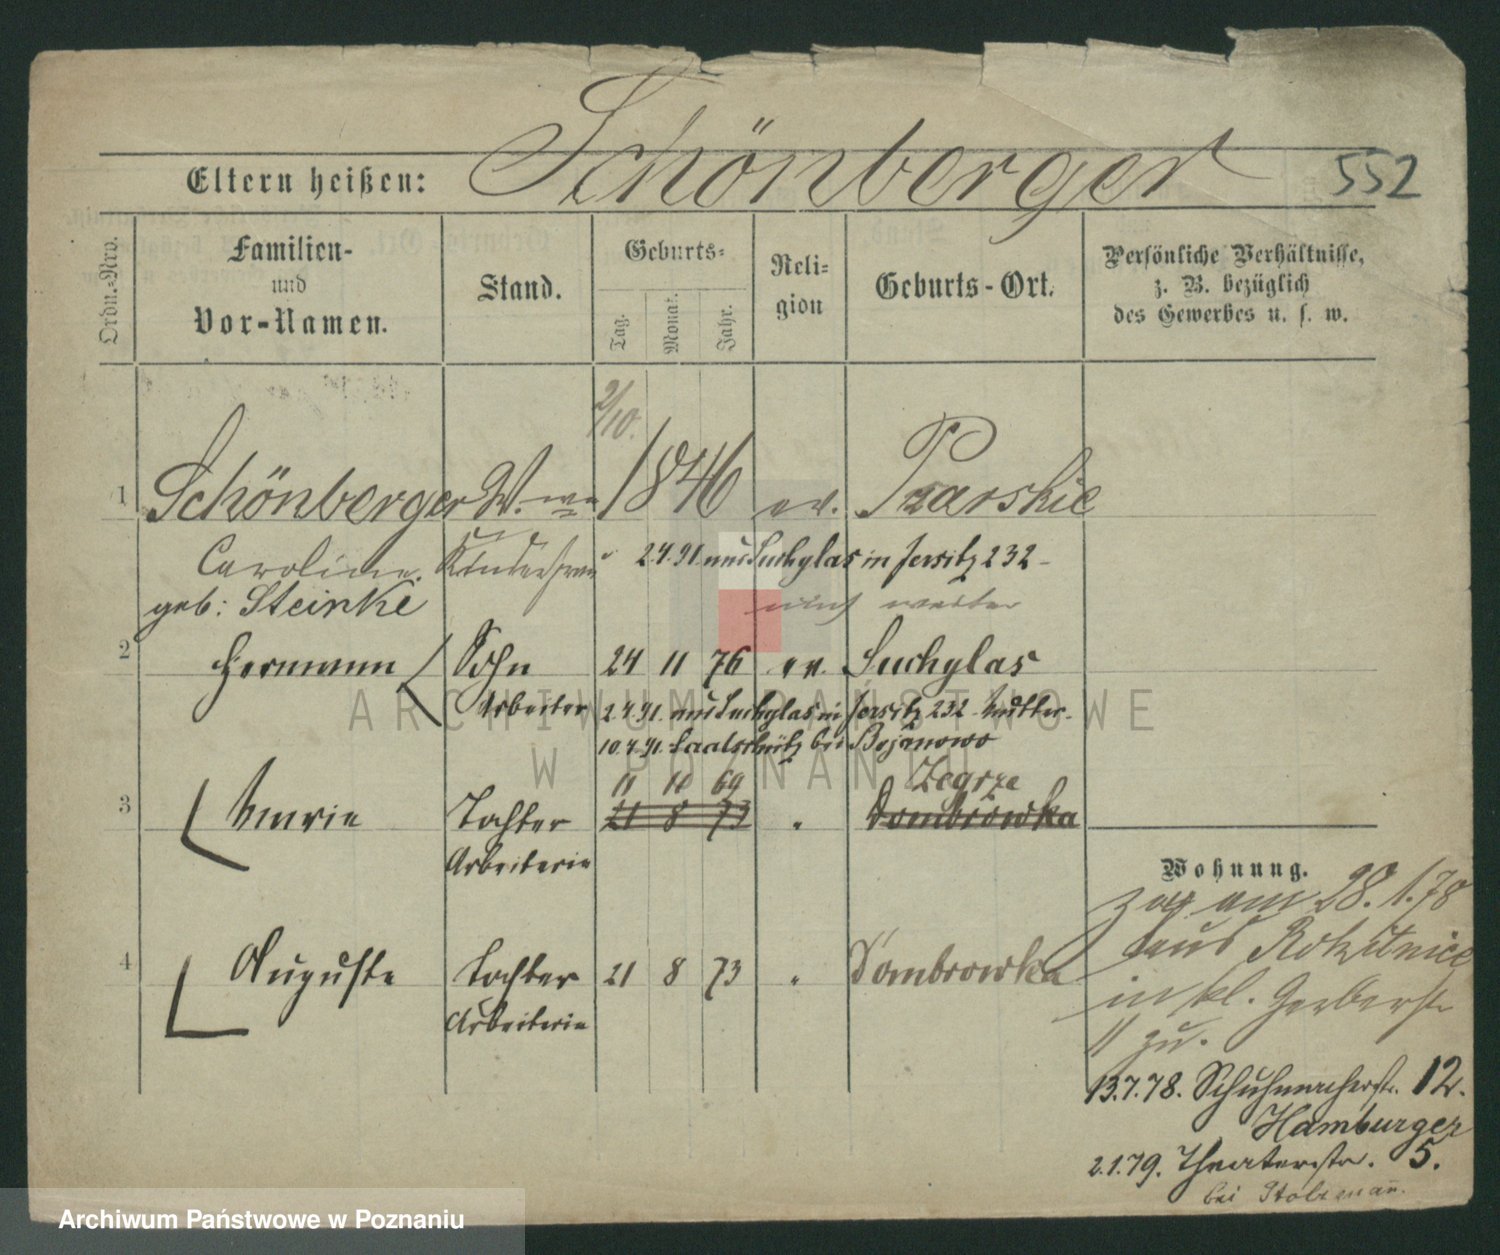 Schönberger
Eltern heißen:
552
Ordn.-Nro.
Familien-
und
Vor-Namen.
Stand.
Geburts-
Tag.
Monat.
Jahr.
Reli-
gion
Geburts-Ort.
Persönliche Verhältnisse,
z. B. bezüglich
des Gewerbes u. s. w.
2/10.
1 Schönberger W.we 1846 ev. Psarskie
Caroline. Kinderfrau 2.4.91 aus Suchylas in Jersitz 232
geb: Steinke
2 Hermann Sohn 24 11 76 ev. Suchylas
Arbeiter 2.4.91. aus Suchylas in Jersitz 232 Mutter.
10.4.91. bei Bojanowo
11 10 69 Zegrze
3 Marie Tochter 21 8 73 " Dombrowka
Arbeiterin
Wohnung.
zog am 28.1.78
aus Rokitnice
in kl. Gerberstr
11 zu.
4 Auguste Tochter 21 8 73 " Dombrowka
Arbeiterin
13.7.78. Schuhmacherstr. 12.
Hamburger
2.1.79. Theaterstr. 5.
bei
ARCHIWUM PAŃSTWOWE
W POZNANIU
Archiwum Państwowe w Poznaniu